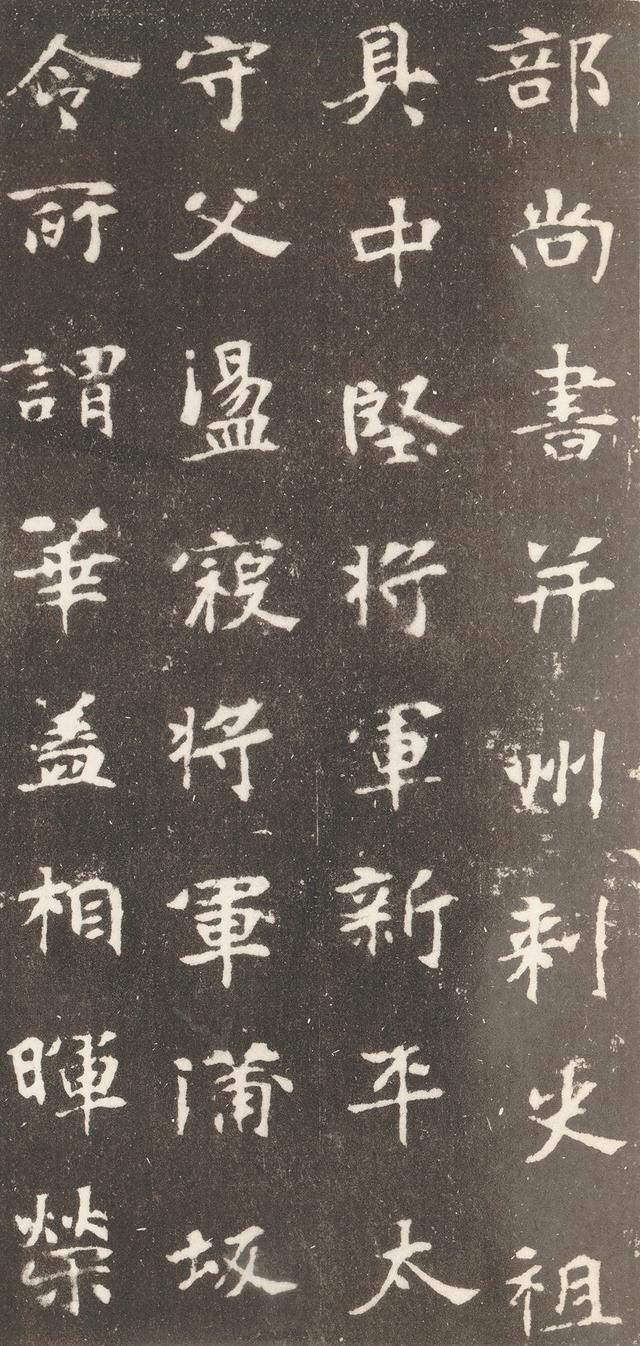 部尚書并州刺史祖
具中堅将軍新平太
守父盪寇将軍蒲坂
令所謂華蓋相暉榮